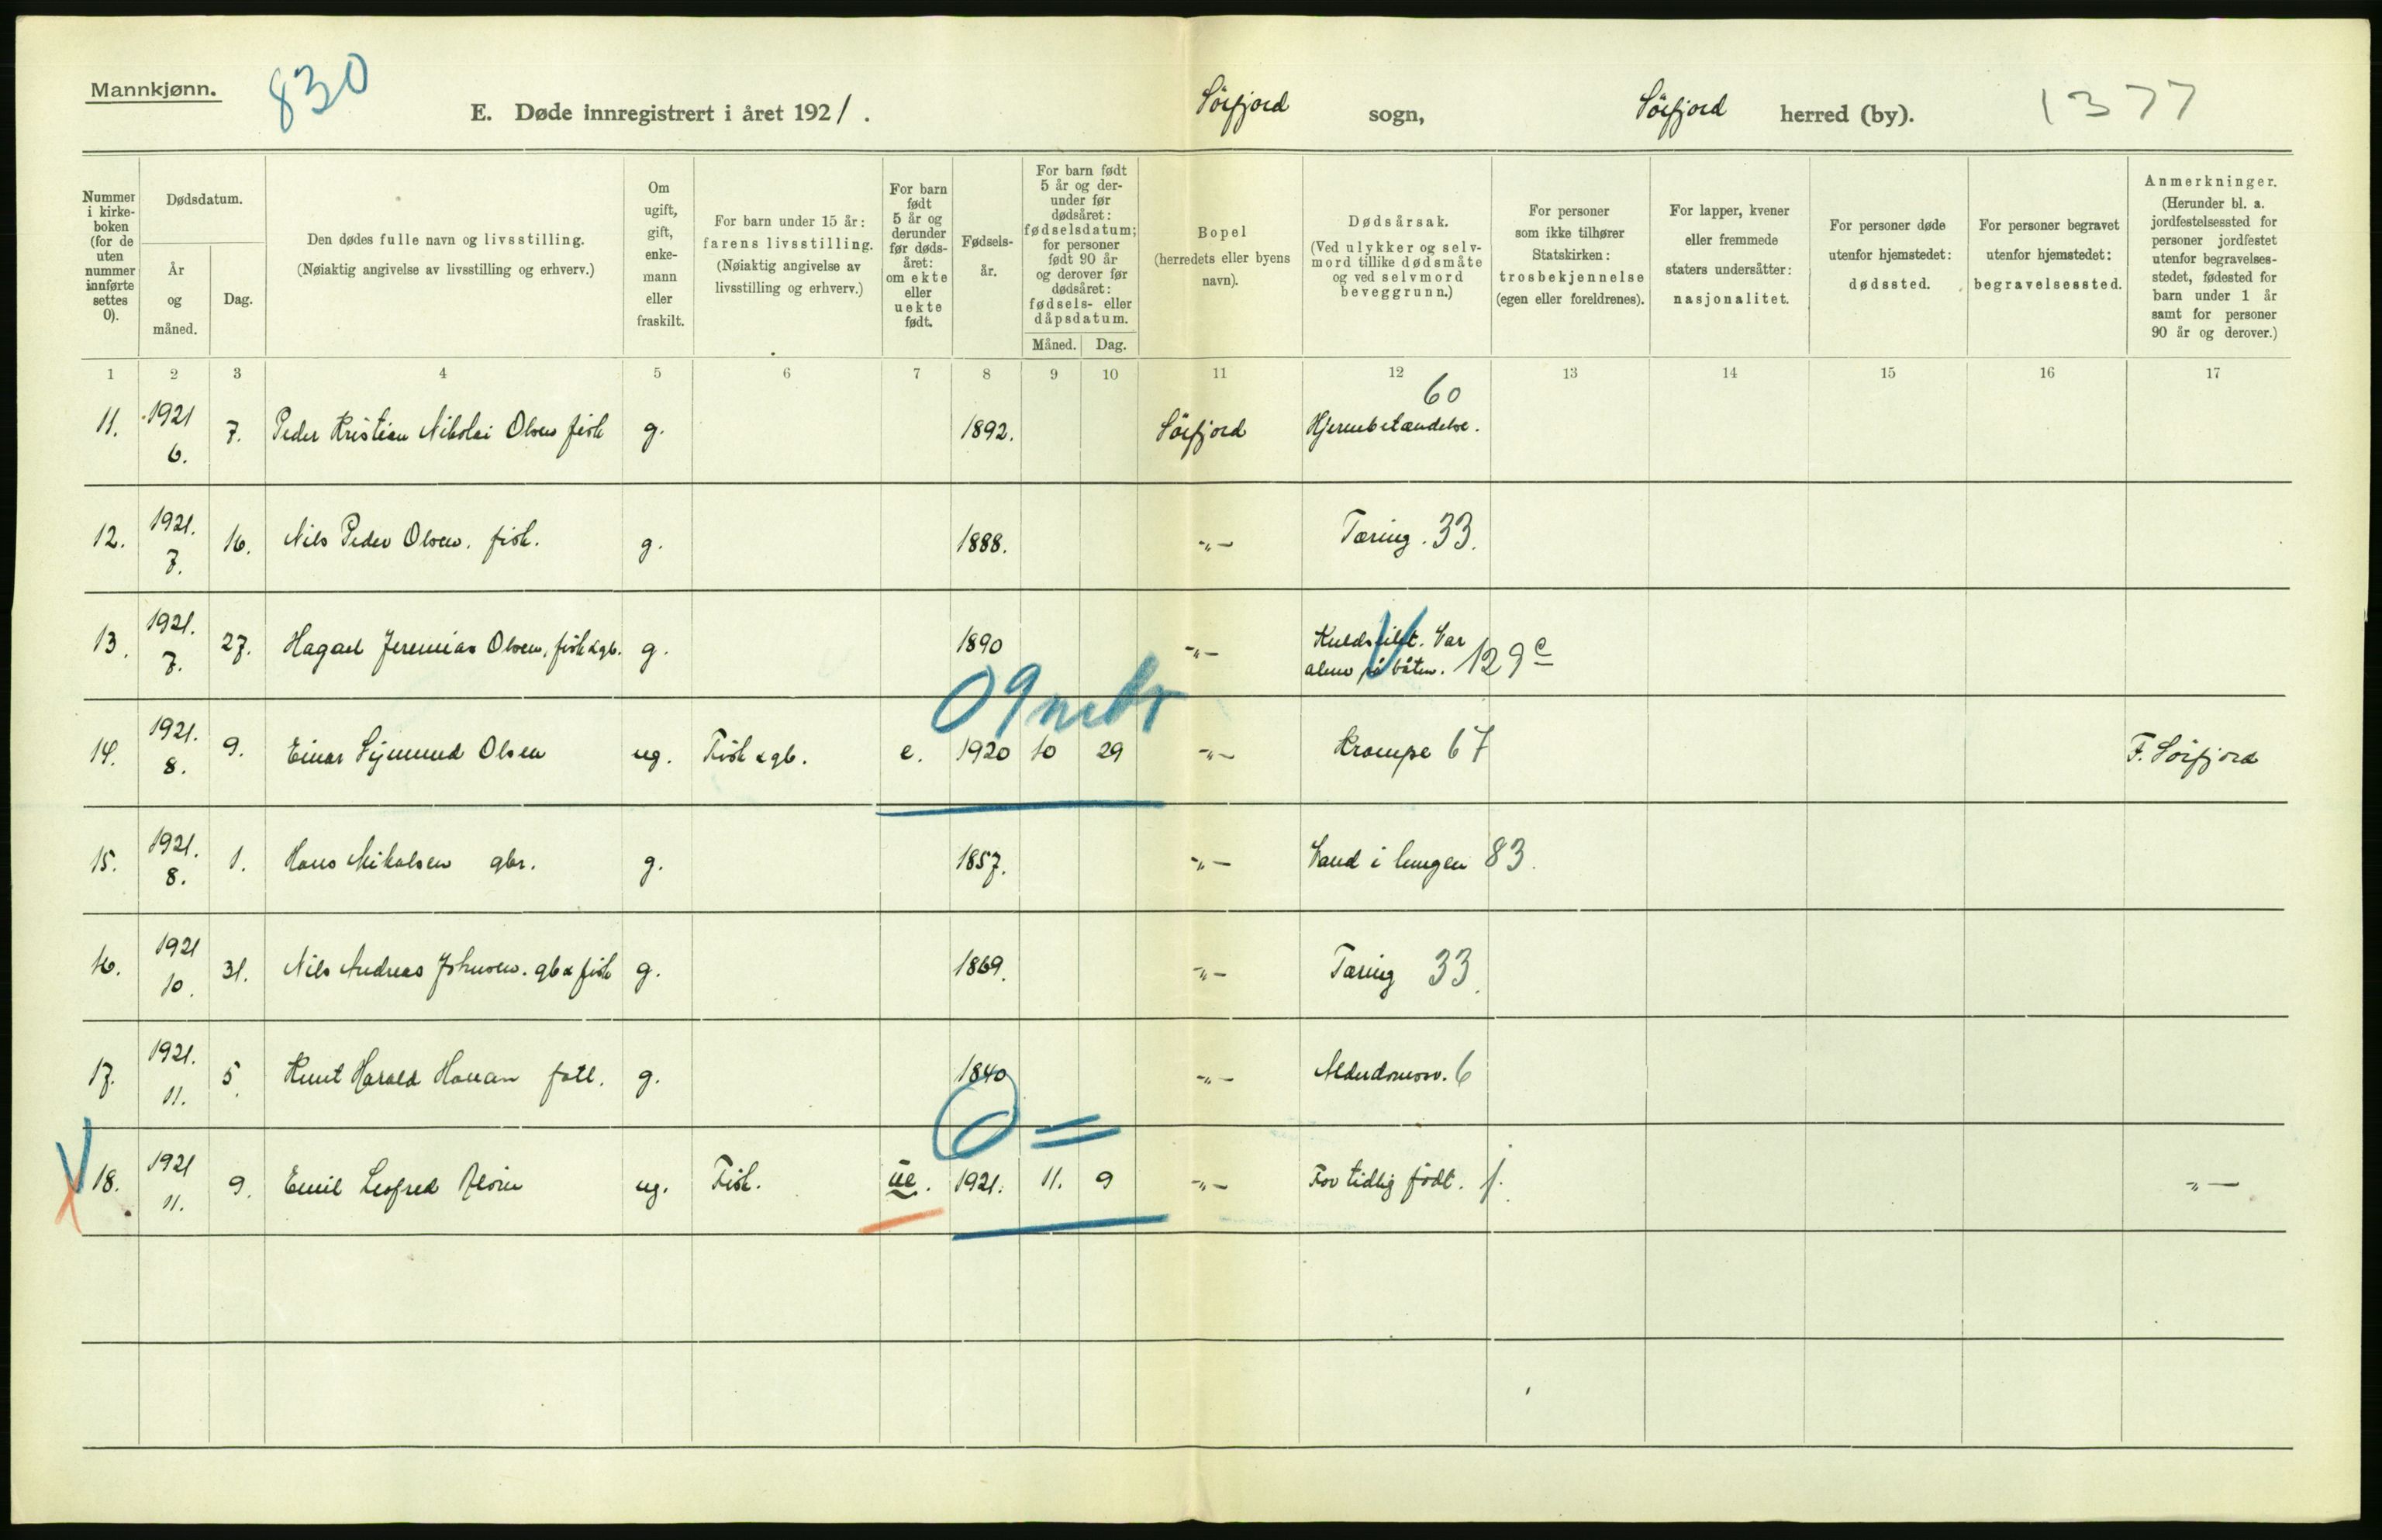 Mannkjønn.
830
E. Døde innregistrert i året 1921. Sörfjord sogn, Sörfjord herred (by). 1377
Nummer i kirkeboken (for de uten nummer innførte settes 0).
Dødsdatum.
År og måned.
Dag.
Den dødes fulle navn og livsstilling.
(Nøiaktig angivelse av livsstilling og erhverv.)
Om ugift, gift, enkemann eller fraskilt.
For barn under 15 år: farens livsstilling.
(Nøiaktig angivelse av livsstilling og erhverv.)
For barn født 5 år og derunder før dødsåret: om ekte eller uekte født.
Fødselsår.
For barn født 5 år og derunder før dødsåret: fødselsdatum; for personer født 90 år og derover før dødsåret: fødsels- eller dåpsdatum.
Måned. Dag.
Bopel (herredets eller byens navn).
Dødsårsak.
(Ved ulykker og selvmord tillike dødsmåte og ved selvmord beveggrunn.)
For personer som ikke tilhører Statskirken: trosbekjennelse (egen eller foreldrenes).
For lapper, kvener eller fremmede staters undersåtter: nasjonalitet.
For personer døde utenfor hjemstedet: dødssted.
For personer begravet utenfor hjemstedet: begravelsessted.
Anmerkninger.
(Herunder bl. a. jordfestelsessted for personer jordfestet utenfor begravelsesstedet, fødested for barn under 1 år samt for personer 90 år og derover.)
1 2 3 4 5 6 7 8 9 10 11 12 13 14 15 16 17
11. 1921 6. 7. Peder Kristian Nikolai Olsen fisk g. 1892. Sörfjord Hjernebetændelse. 60
12. 1921. 7. 16. Nils Peder Olsen. fisk. g. 1888. -„- Tæring. 33.
13. 1921. 7. 27. Hagael Jeremias Olsen, fisk & gb. g. 1890 -„- Kuldslilet. Var alene på båten. 129 c
09 mdr
14. 1921. 8. 9. Einar Sigmund Olsen ug. Fisk & gb. e. 1920 10 29 -„- Krampe 67 F. Sörfjord
15. 1921. 8. 1. Hans Mikalsen gbr. g. 1857. -„- Vand i lungen 83.
16. 1921 10. 31. Nils Andreas Johnsen. gb & fisk g. 1869. -„- Tæring 33.
17. 1921. 11. 5. Knut Harald Hansen g. 1840 -„- Alderdomssv. 6
0 =
18. 1921 11. 9. Emil Leofred ug. Fisk. ue. 1921. 11. 9 -„- For tidlig födt. -„-